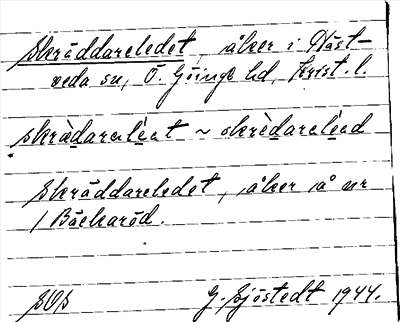 Skräddareledet, åker i Häst-
veda sn, Ö. Göinge hd, Krist. l.
skrèdarelèat ~ skrèdarelèad
Skräddareledet, åker å nr
1 Bäckaröd.
SOS G. Sjöstedt 1944.